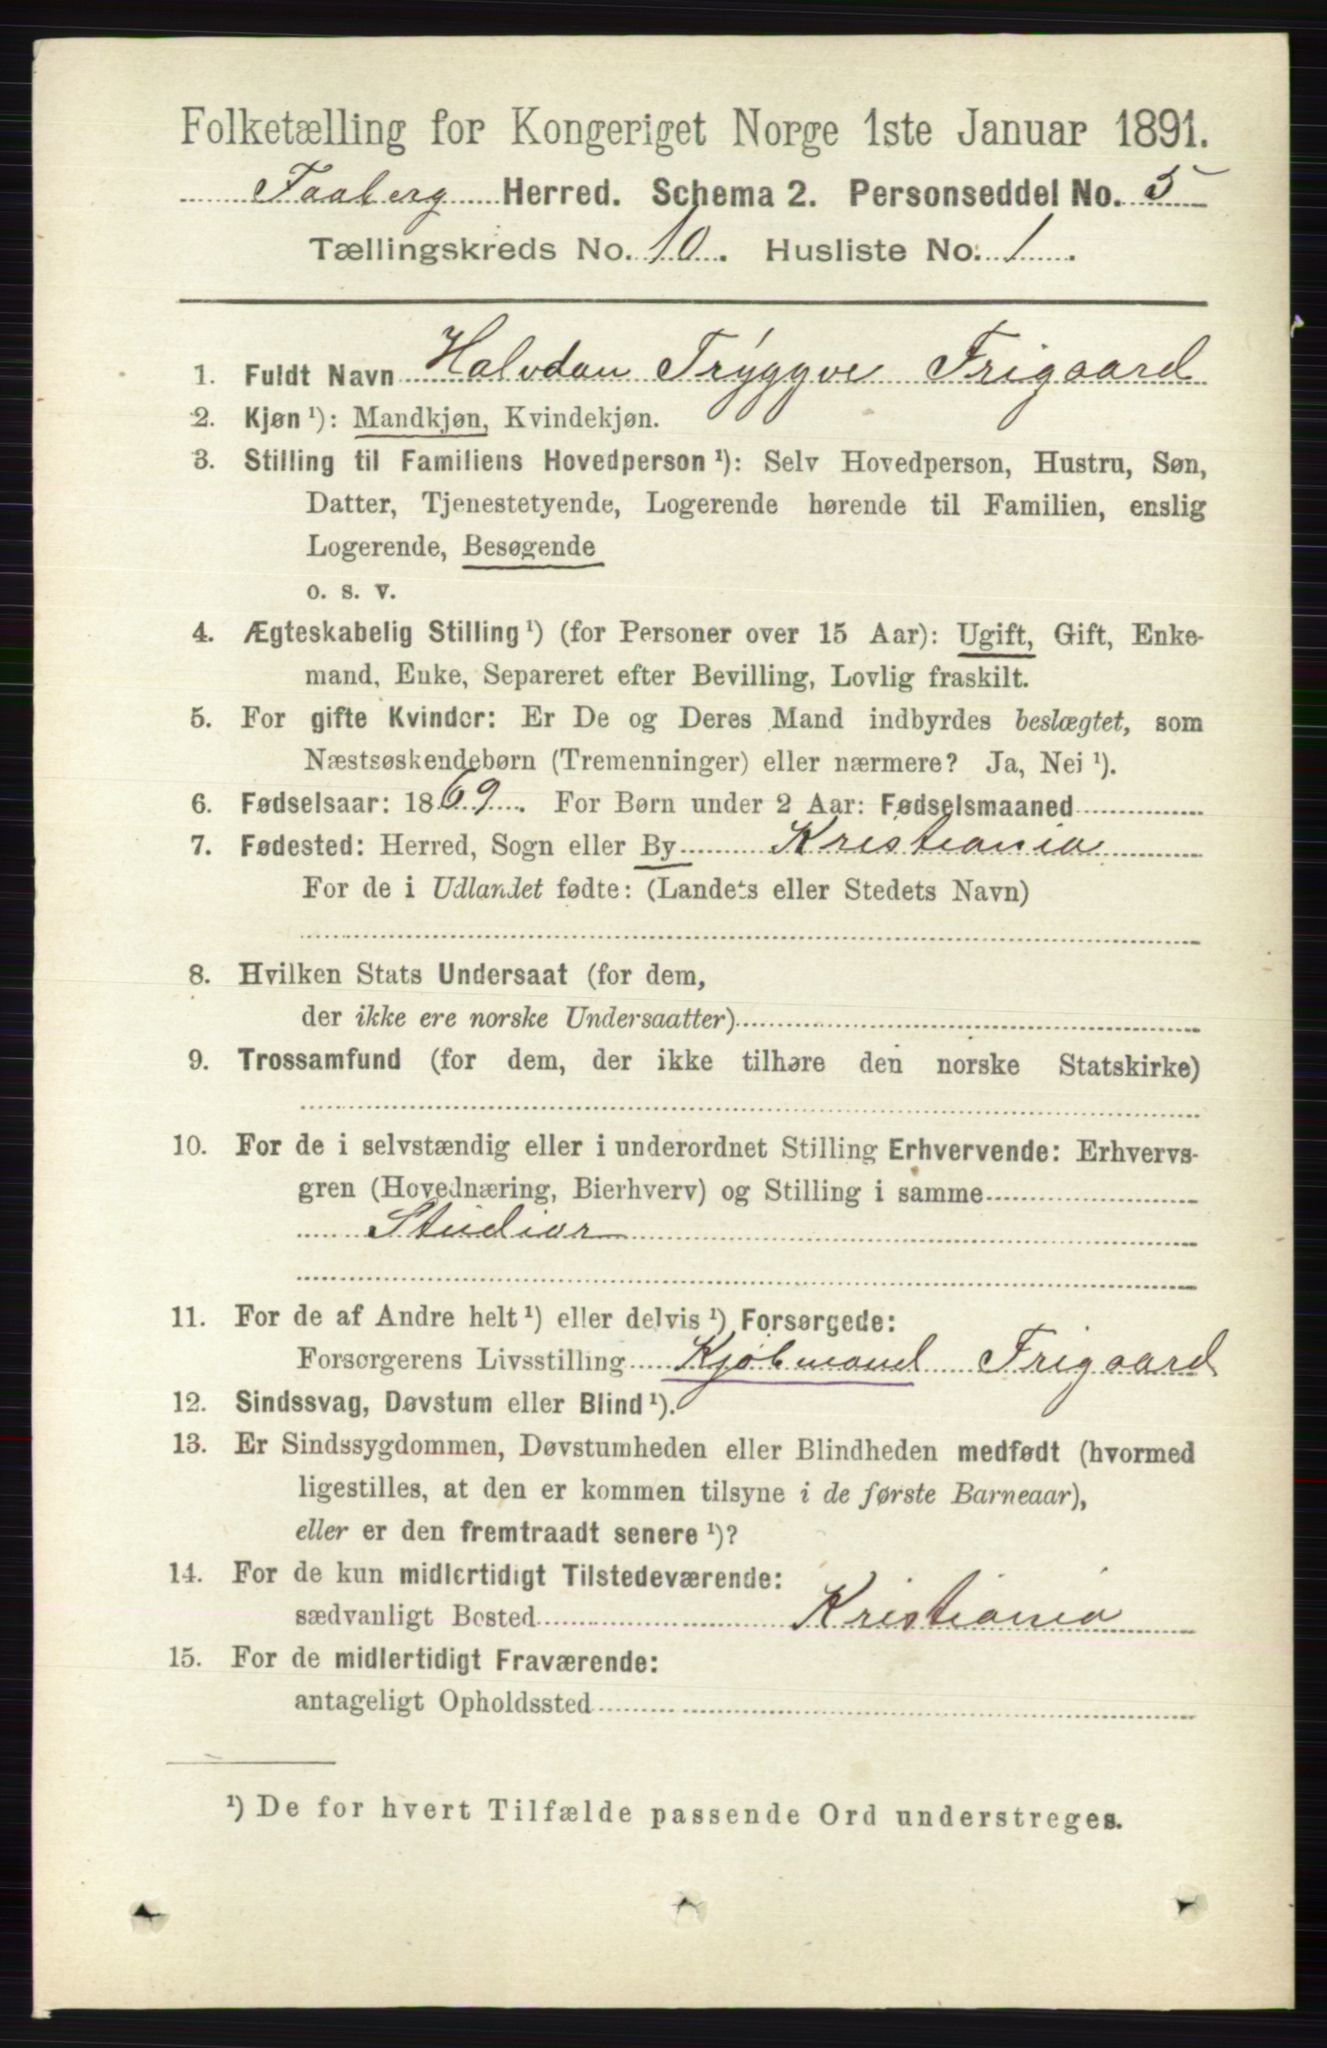 Folketælling for Kongeriget Norge 1ste Januar 1891.
Faaberg Herred. Schema 2. Personseddel No. 5
Tællingskreds No. 10. Husliste No. 1.
1. Fuldt Navn Halvdan Tryggve Frigaard
2. Kjøn ¹): Mandkjøn, Kvindekjøn.
3. Stilling til Familiens Hovedperson ¹): Selv Hovedperson, Hustru, Søn,
Datter, Tjenestetyende, Logerende hørende til Familien, enslig
Logerende, Besøgende
o. s. v.
4. Ægteskabelig Stilling ¹) (for Personer over 15 Aar): Ugift, Gift, Enke-
mand, Enke, Separeret efter Bevilling, Lovlig fraskilt.
5. For gifte Kvinder: Er De og Deres Mand indbyrdes beslægtet, som
Næstsøskendebørn (Tremenninger) eller nærmere? Ja, Nei ¹).
6. Fødselsaar: 1869. For Børn under 2 Aar: Fødselsmaaned
7. Fødested: Herred, Sogn eller By Kristiania
For de i Udlandet fødte: (Landets eller Stedets Navn)
8. Hvilken Stats Undersaat (for dem,
der ikke ere norske Undersaatter)
9. Trossamfund (for dem, der ikke tilhøre den norske Statskirke)
10. For de i selvstændig eller i underordnet Stilling Erhvervende: Erhvervs-
gren (Hovednæring, Bierhverv) og Stilling i samme
Studior
11. For de af Andre helt ¹) eller delvis ¹) Forsørgede:
Forsørgerens Livsstilling Kjøbmand Frigaard
12. Sindssvag, Døvstum eller Blind ¹).
13. Er Sindssygdommen, Døvstumheden eller Blindheden medfødt (hvormed
ligestilles, at den er kommen tilsyne i de første Barneaar),
eller er den fremtraadt senere ¹)?
14. For de kun midlertidigt Tilstedeværende:
sædvanligt Bosted Kristiania
15. For de midlertidigt Fraværende:
antageligt Opholdssted
¹) De for hvert Tilfælde passende Ord understreges.